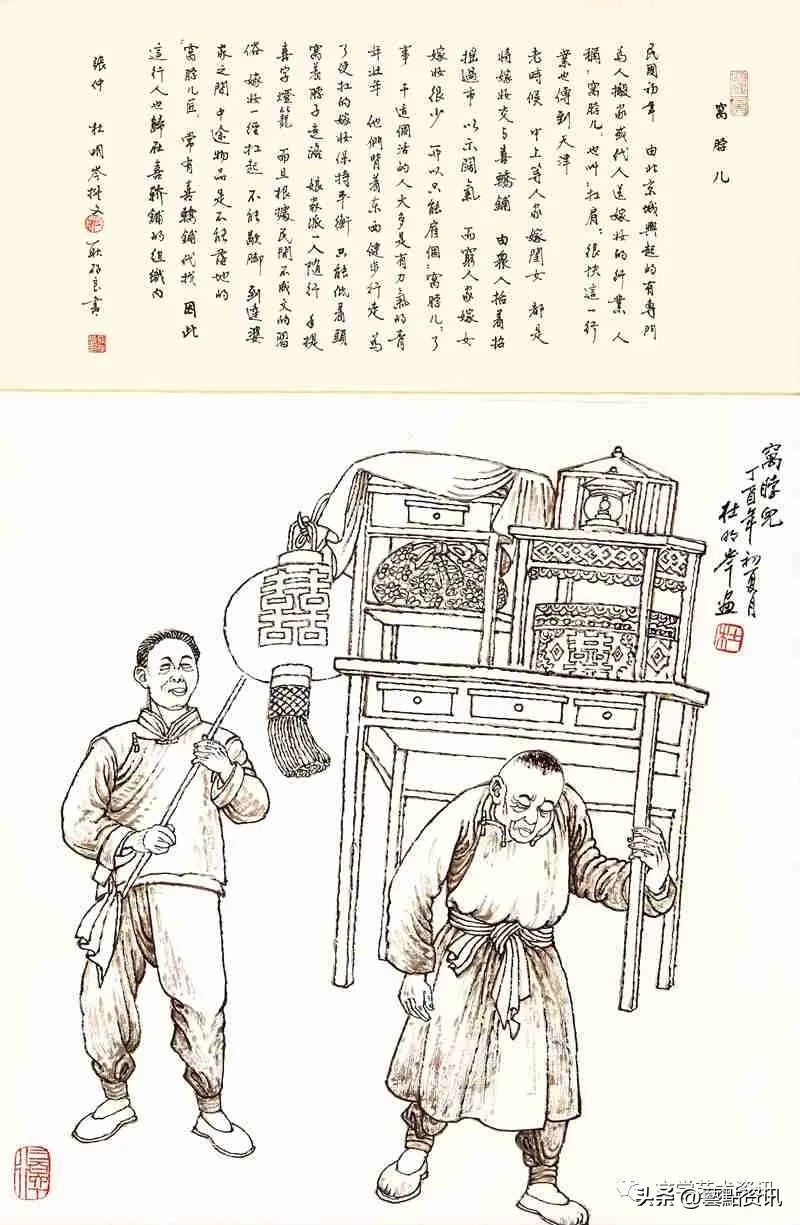 窝脖儿
民國初年 由北京城興起的有專門
為人搬家或代人送嫁妝的行業 人
稱“窝脖儿”也叫“扛肩”很快這一行
業也傳到天津
老時候 中上等人家嫁閨女 都是
將嫁妝交与喜轎鋪 由衆人抬着招
摇過市 以示闊氣 而窮人家嫁女
嫁妝很少 所以只能雇個“窝脖儿”了
事 干這個活的人大多是有力氣的青
年壯年 他們背着东西健步行走 為
了使扛的嫁妝保持平衡 只能低着頭
窝着脖子走路 娘家派一人随行 手提
喜字燈籠 而且根據民間不成文的習
俗 嫁妝一經扛起 不能歇脚 到達婆
家之間 中途物品是不能落地的
“窝脖儿”們常有喜轎鋪代找 因此
這行人也歸在喜轎鋪的組織内
張仲 杜明岑撰文
良書
窩脖兒
丁酉年初夏月
杜明岑画
杜
头条@藝點资讯